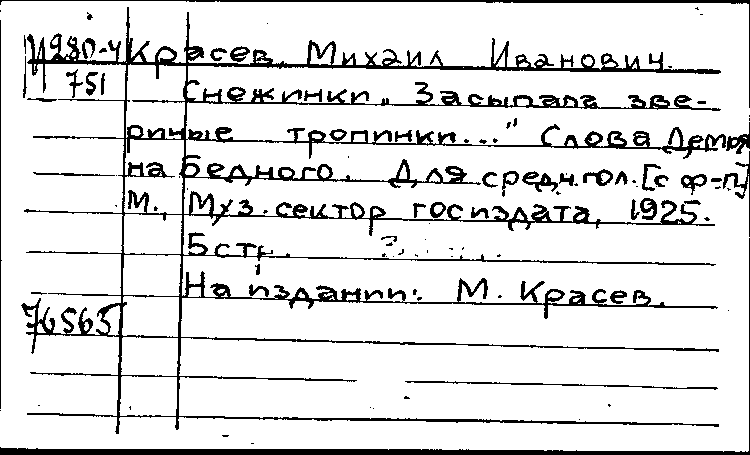 Ц280-4 Красев, Михаил Иванович.
751 Снежинки „Засыпала зве-
риные тропинки..." Слова Демья
на Бедного. Для средн.гол. [с ф-п]
М., Муз. сектор госиздата, 1925.
5 стр.
На издании: М. Красев.
76565